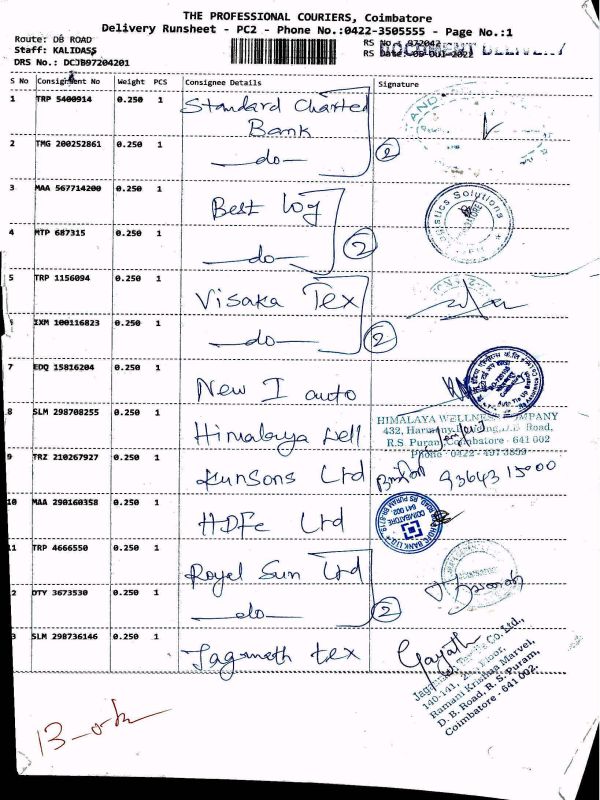 THE PROFESSIONAL COURIERS, Coimbatore
Delivery Runsheet - PC2 - Phone No.:0422-3505555 - Page No.:1
Route: DB ROAD
RS No.: 972042
Staff: KALIDASS
RS Date:
DOCUMENT DELIVERY
DRS No.: DCJB97204201
S No Consignment No Weight PCS Consignee Details Signature
1 TRP 5400914 0.250 1 Standard Charted
Bank
2 TMG 200252861 0.250 1 —do— 2
3 MAA 567714200 0.250 1 Best log
Logistics Solutions
4 MTP 687315 0.250 1 —do— 2
5 TRP 1156094 0.250 1 Visaka Tex
IXM 100116823 0.250 1 —do— 2
7 EDQ 15816204 0.250 1 New I auto
8 SLM 298708255 0.250 1 Himalaya Well
HIMALAYA WELLNESS COMPANY
432, Harmony Building, D.B. Road,
R.S. Puram, Coimbatore - 641 002
Phone - 0422 - 497 3899
9 TRZ 210267927 0.250 1 Kunsons Ltd 93643 15000
10 MAA 290160358 0.250 1 HDFc Ltd
HDFC BANK LTD
COIMBATORE
641 002
11 TRP 4666550 0.250 1 Royal Sun Ltd
2 DTY 3673530 0.250 1 —do— 2
3 SLM 298736146 0.250 1 Jagannath tex
Gayath
140-141, 2nd Floor,
Ramani Krishna Marvel,
D. B. Road, R. S. Puram,
Coimbatore - 641 002.
13-